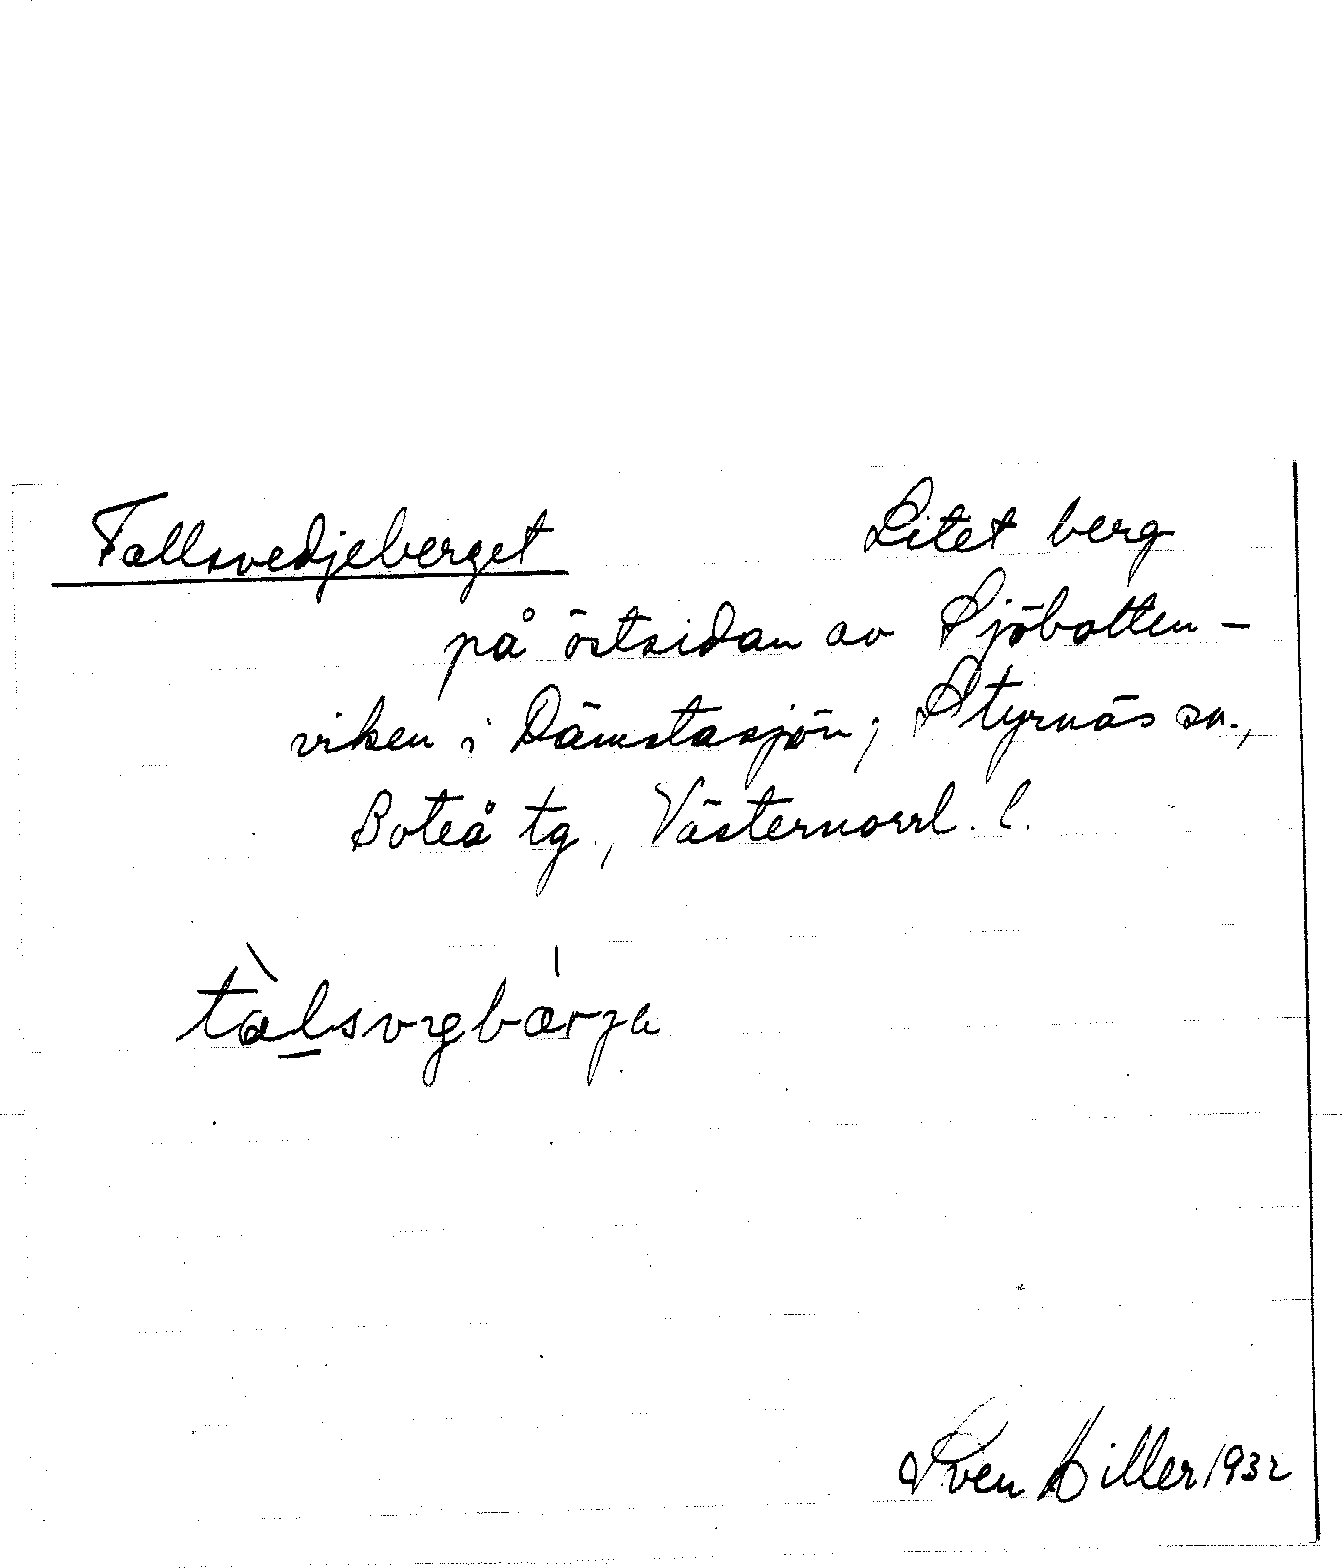 Tallsvedjeberget Litet berg
på östsidan av Sjöbotten-
viken i Dämstasjön; Styrnäs sn.,
Boteå tg, Västernorrl. l.
Sven Hiller 1932